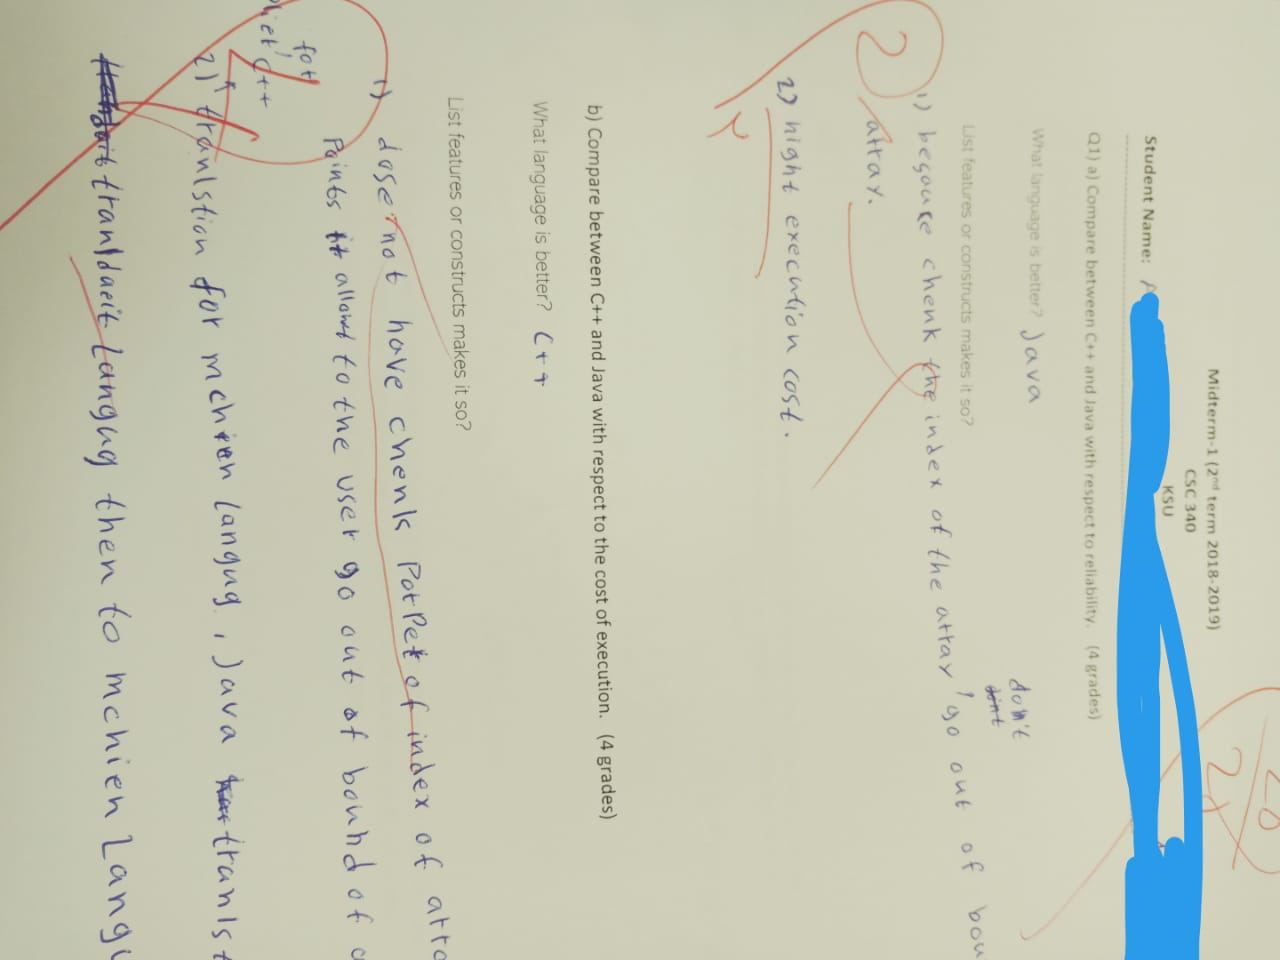 Midterm-1 (2nd term 2018-2019)
CSC 340
KSU
20
24
Student Name:
Q1) a) Compare between C++ and Java with respect to reliability. (4 grades)
What language is better? Java
don't
List features or constructs makes it so?
1) begause chenk the index of the array, go out of bou
array.
2
2) hight execution cost.
b) Compare between C++ and Java with respect to the cost of execution. (4 grades)
What language is better? C++
List features or constructs makes it so?
1) dose not have chenk of index of arra
Points it allowt to the user go out of bound of
for C++
4
2) tranlstion for mchien langug, Java tranlst
tranldaeit Langug then to mchien Langu